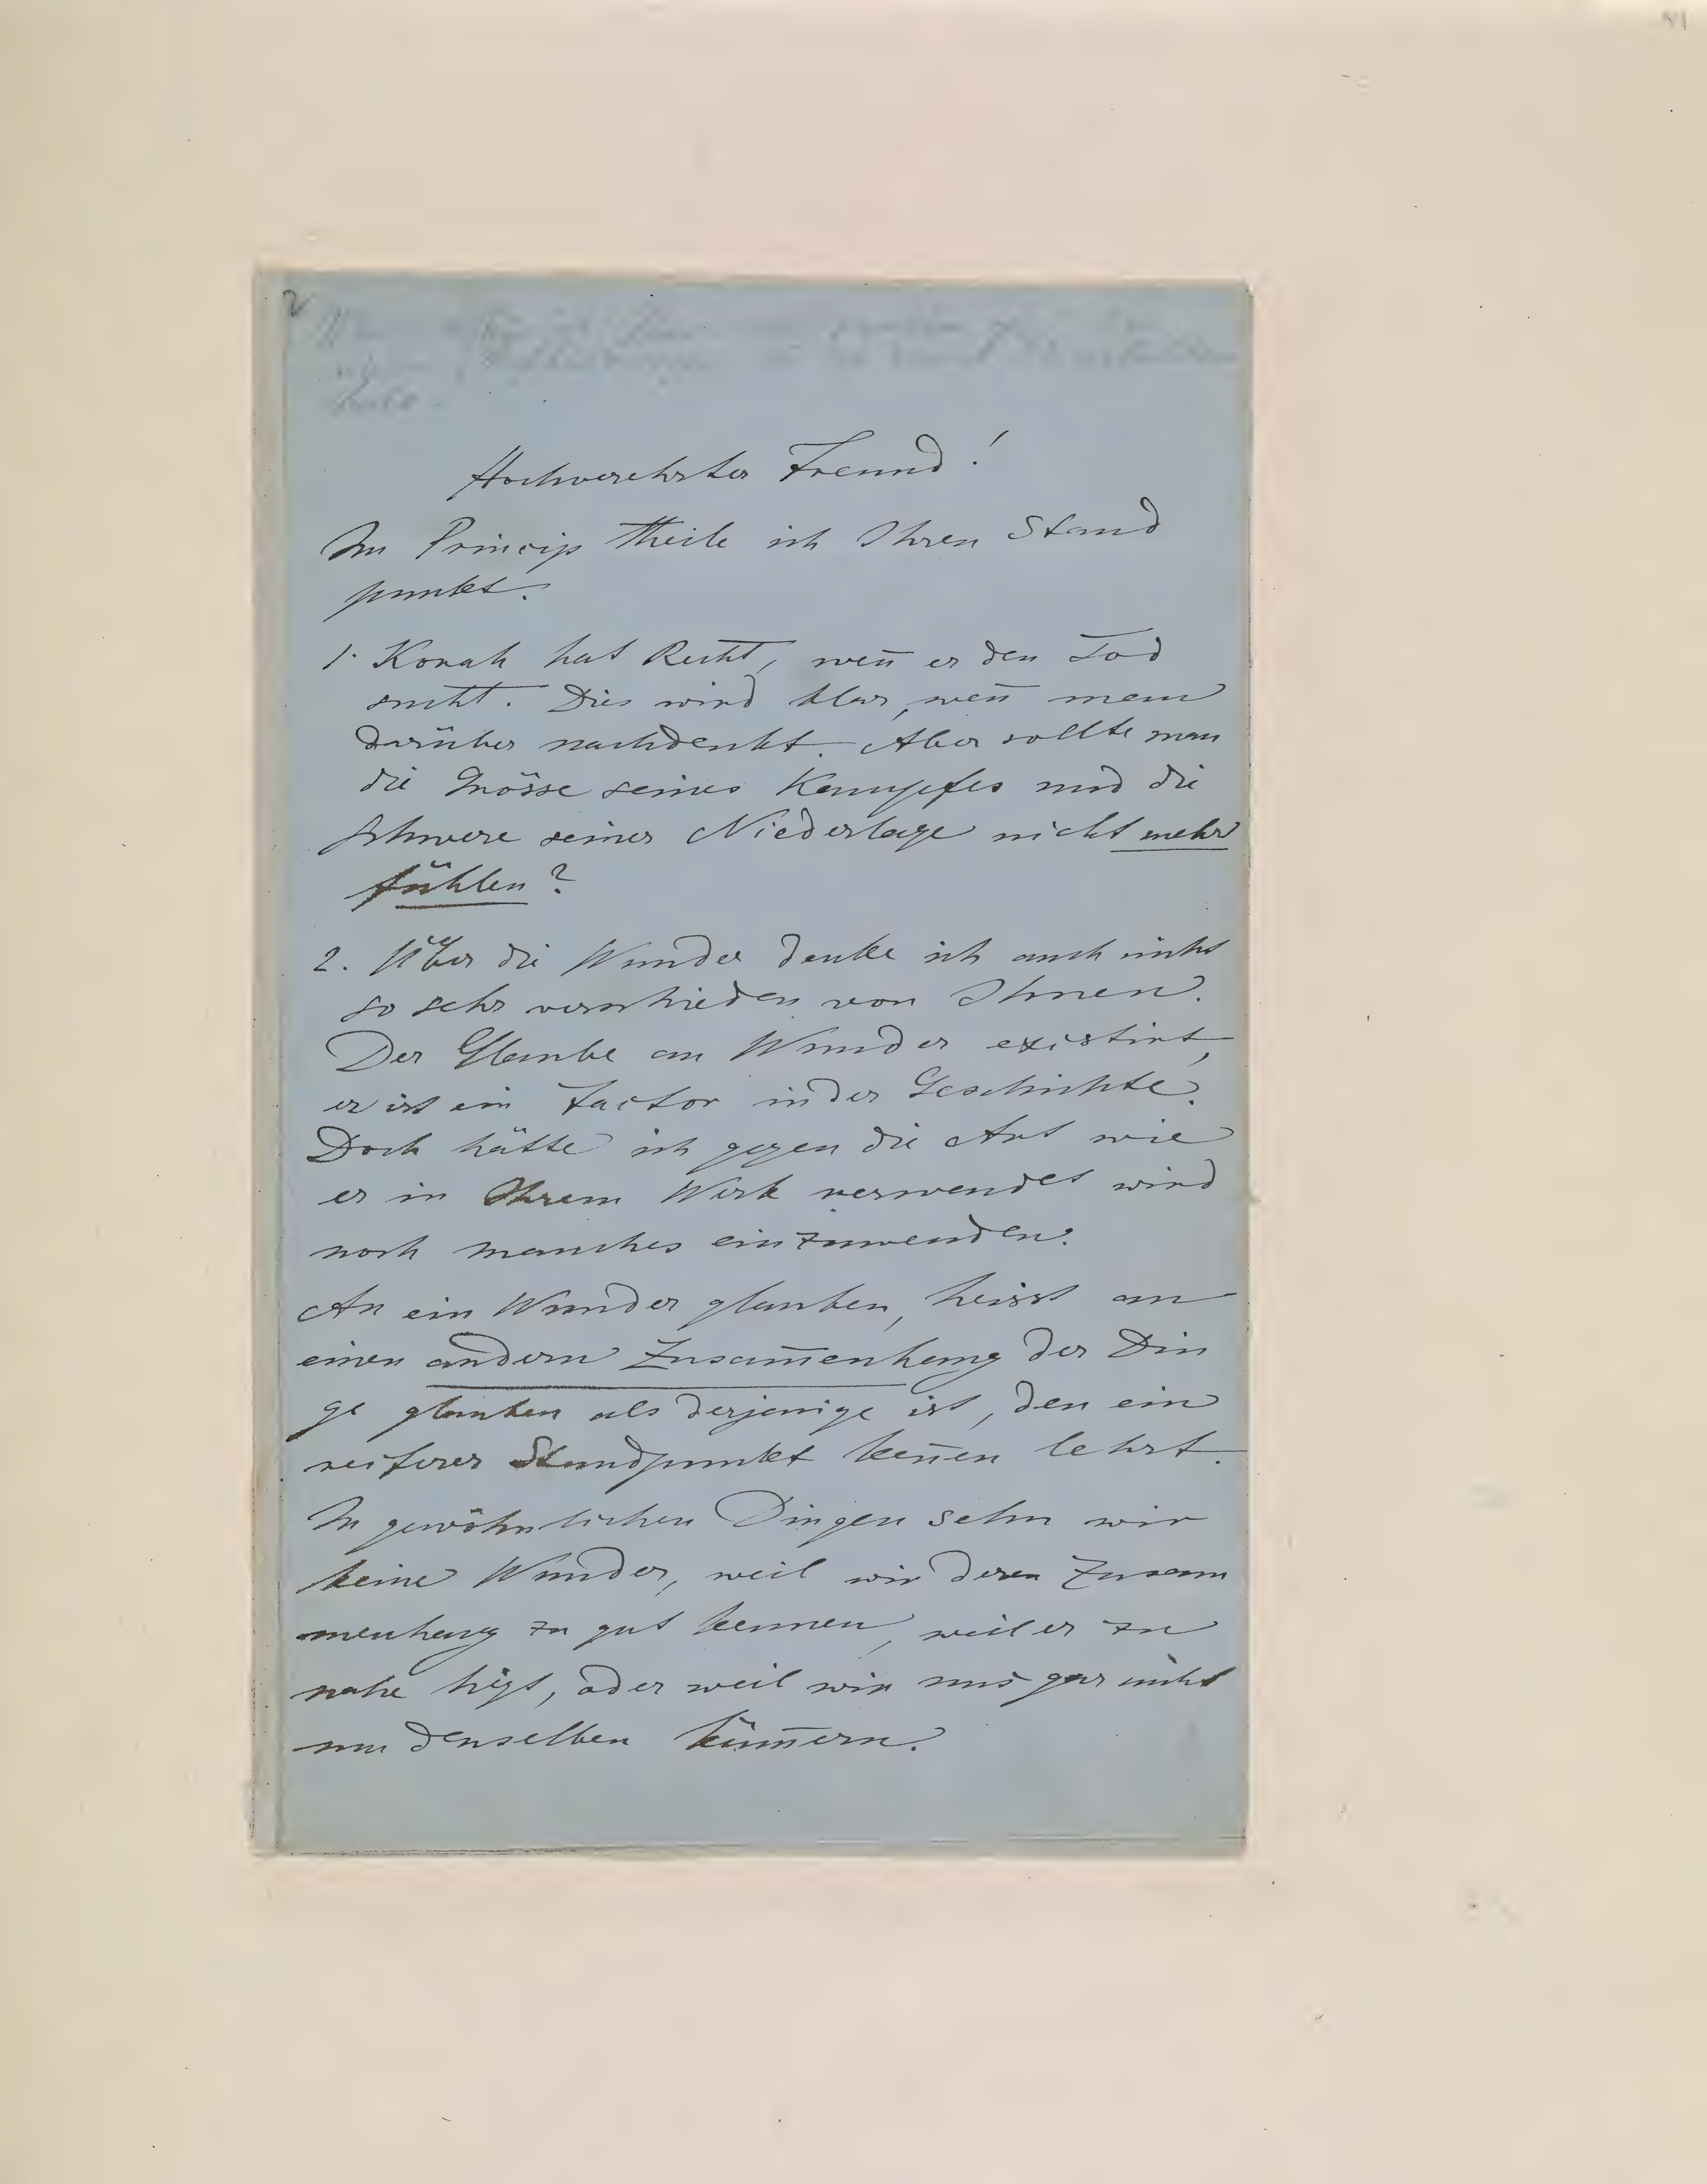 2
Hochverehrter Freund!
Im Princip theile ich Ihren Stand
punkt.
1. Korah hat Recht, weñ er den Tod
sucht. Dies wird klar, weñ man
darüber nachdenkt. Aber sollte man
die Grösse seines Kampfes und die
Schwere seiner Niederlage nicht mehr
fühlen?
2. Über die Wunder denke ich auch nicht
so sehr verschieden von Ihnen.
Der Glaube an Wunder existirt,
er ist ein Factor in der Geschichte.
Doch hätte ich gegen die Art wie
er in Ihrem Werk verwendet wird
noch manches einzuwenden.
An ein Wunder glauben, heisst an
einen andern Zusam̄enhang der Din
ge glauben als derjenige ist, den ein
reiferer Standpunkt keñen lehrt.
In gewöhnlichen Dingen sehn wir
keine Wunder, weil wir deren Zusam
menhang zu gut kennen, weil er zu
nahe ligt, oder weil wir uns gar nicht
um denselben küm̄ern.